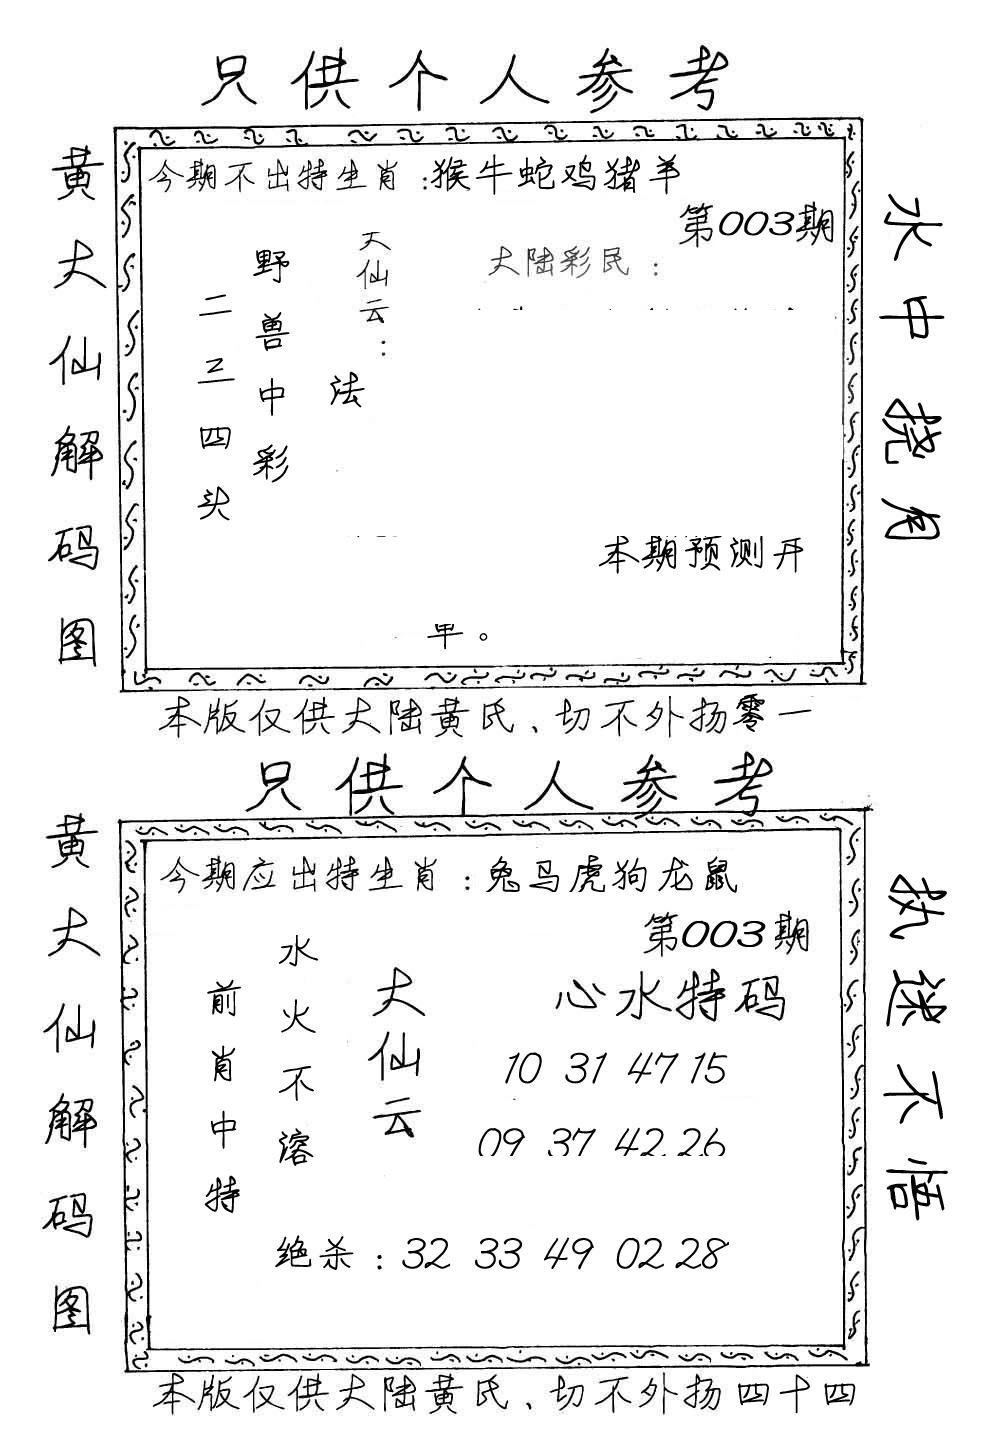 只供个人参考
黄大仙解码图
今期不出特生肖：猴牛蛇鸡猪羊
第003期
水中挠月
大陆彩民：
大仙云：
野兽中彩
二三四头
法
本期预测开
单。
本版仅供大陆黄氏、切不外扬零一
只供个人参考
黄大仙解码图
今期应出特生肖：兔马虎狗龙鼠
第003期
执迷不悟
心水特码
大仙云
水火不溶
前肖中特
10 31 47 15
09 37 42 26
绝杀：32 33 49 02 28
本版仅供大陆黄氏、切不外扬四十四